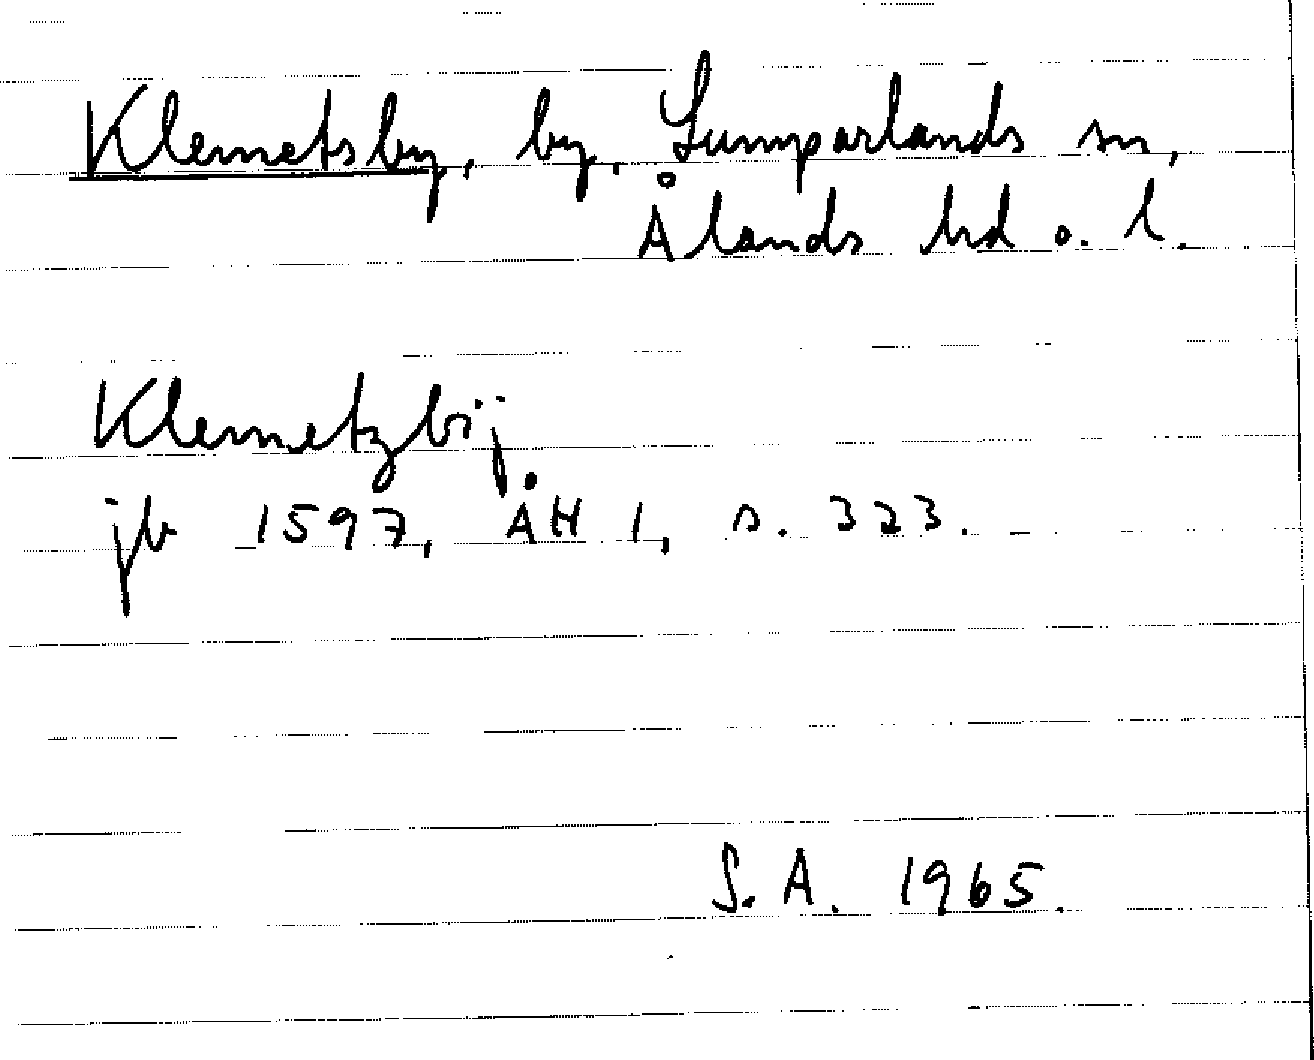 Klemetsby, by, Lumparlands sn,
Ålands hd o. l.
Klemetzbÿ
jb 1597, ÅH 1, s. 323.
S. A. 1965.